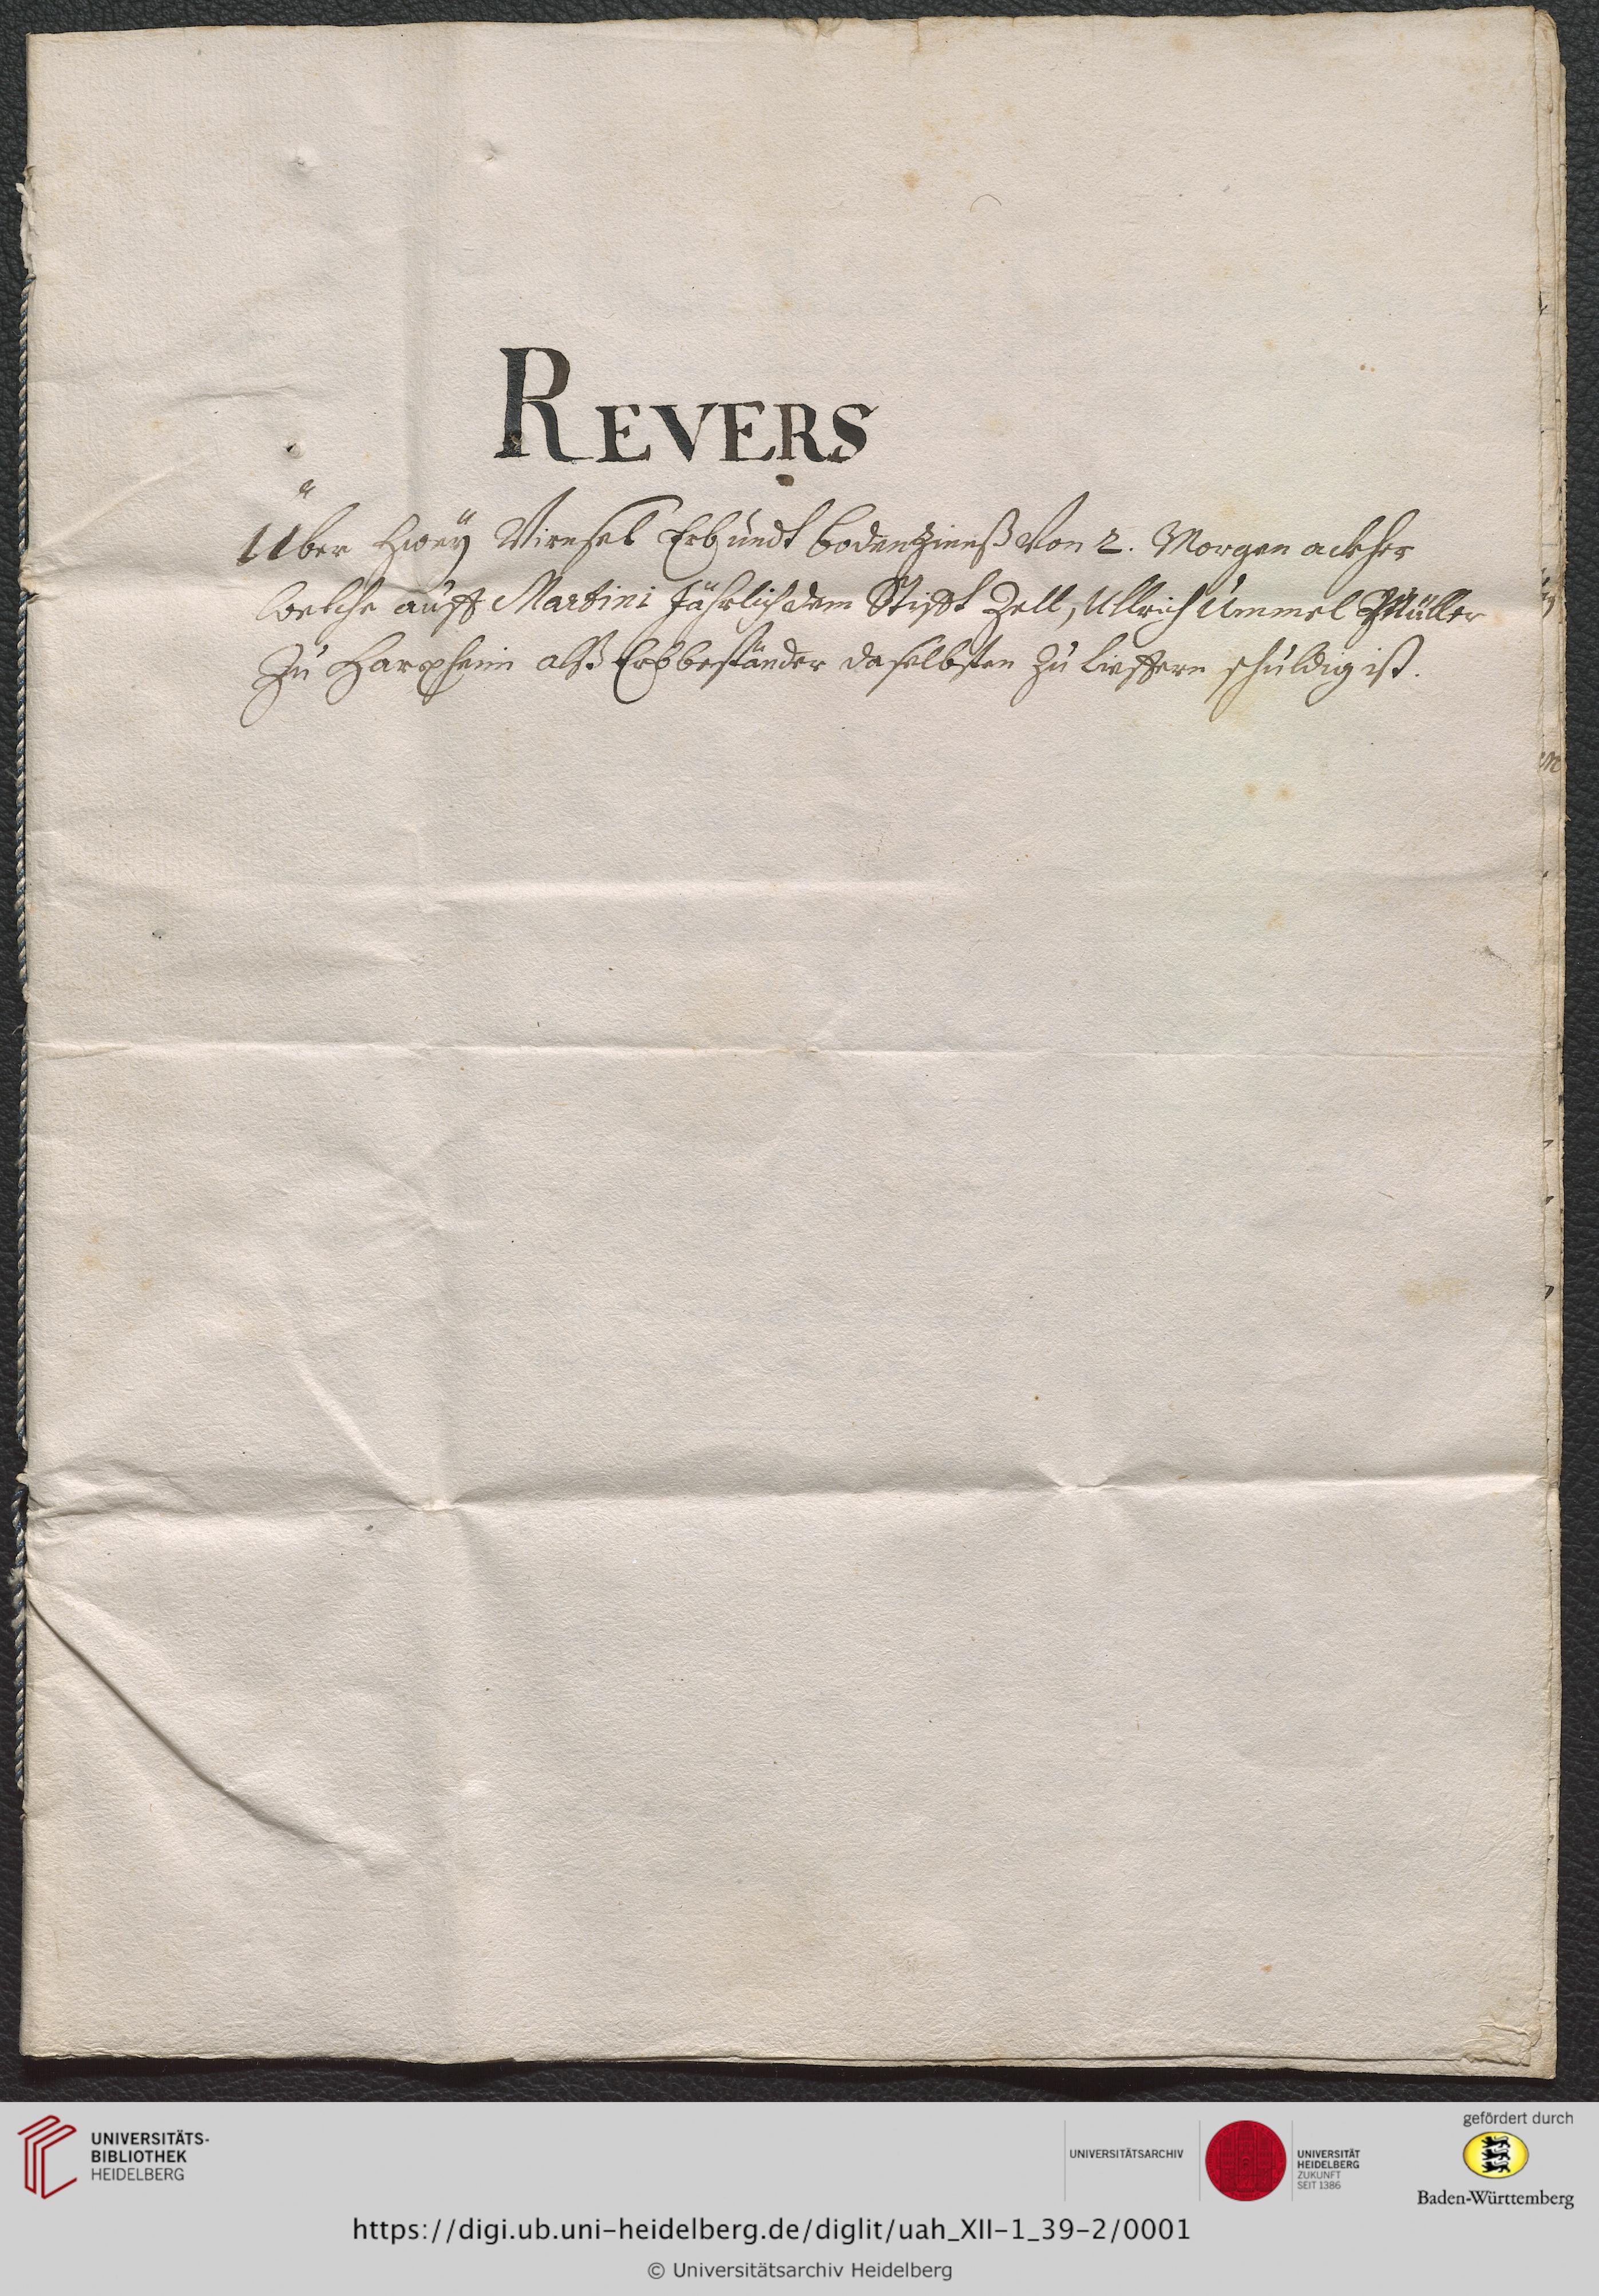 REVERS
Über zweÿ Virnsel Erb undt bodenzinnß von 2. Morgen ackher
welche auff Martini Jährlich dem Stifft Zell, Ullrich Ummel Müller
Zu Harxheim alß Erbbeständer daselbsten zu lieffern schuldig ist.
UNIVERSITÄTS-
BIBLIOTHEK
HEIDELBERG
UNIVERSITÄTSARCHIV
UNIVERSITÄT
HEIDELBERG
ZUKUNFT
SEIT 1386
gefördert durch
Baden-Württemberg
https://digi.ub.uni-heidelberg.de/diglit/uah_XII-1_39-2/0001
© Universitätsarchiv Heidelberg